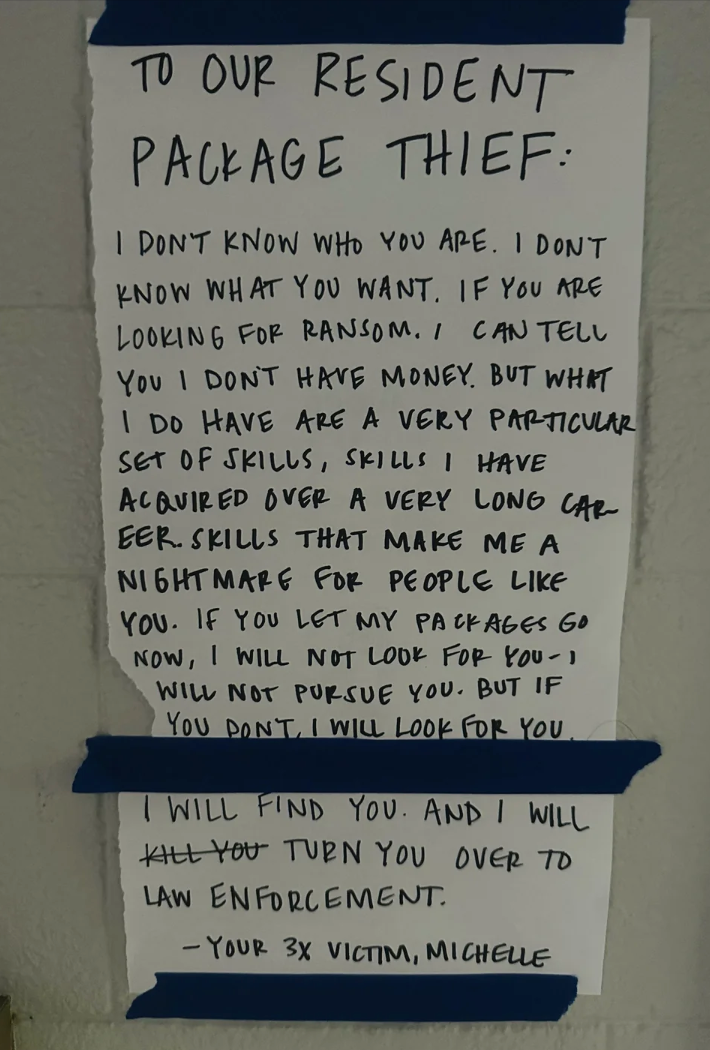 TO OUR RESIDENT
PACKAGE THIEF:
I DON'T KNOW WHO YOU ARE. I DON'T
KNOW WHAT YOU WANT. IF YOU ARE
LOOKING FOR RANSOM. I CAN TELL
YOU I DON'T HAVE MONEY. BUT WHAT
I DO HAVE ARE A VERY PARTICULAR
SET OF SKILLS, SKILLS I HAVE
ACQUIRED OVER A VERY LONG CAR-
EER. SKILLS THAT MAKE ME A
NIGHTMARE FOR PEOPLE LIKE
YOU. IF YOU LET MY PACKAGES GO
NOW, I WILL NOT LOOK FOR YOU - I
WILL NOT PURSUE YOU. BUT IF
YOU DON'T, I WILL LOOK FOR YOU.
I WILL FIND YOU. AND I WILL
KILL YOU TURN YOU OVER TO
LAW ENFORCEMENT.
- YOUR 3X VICTIM, MICHELLE